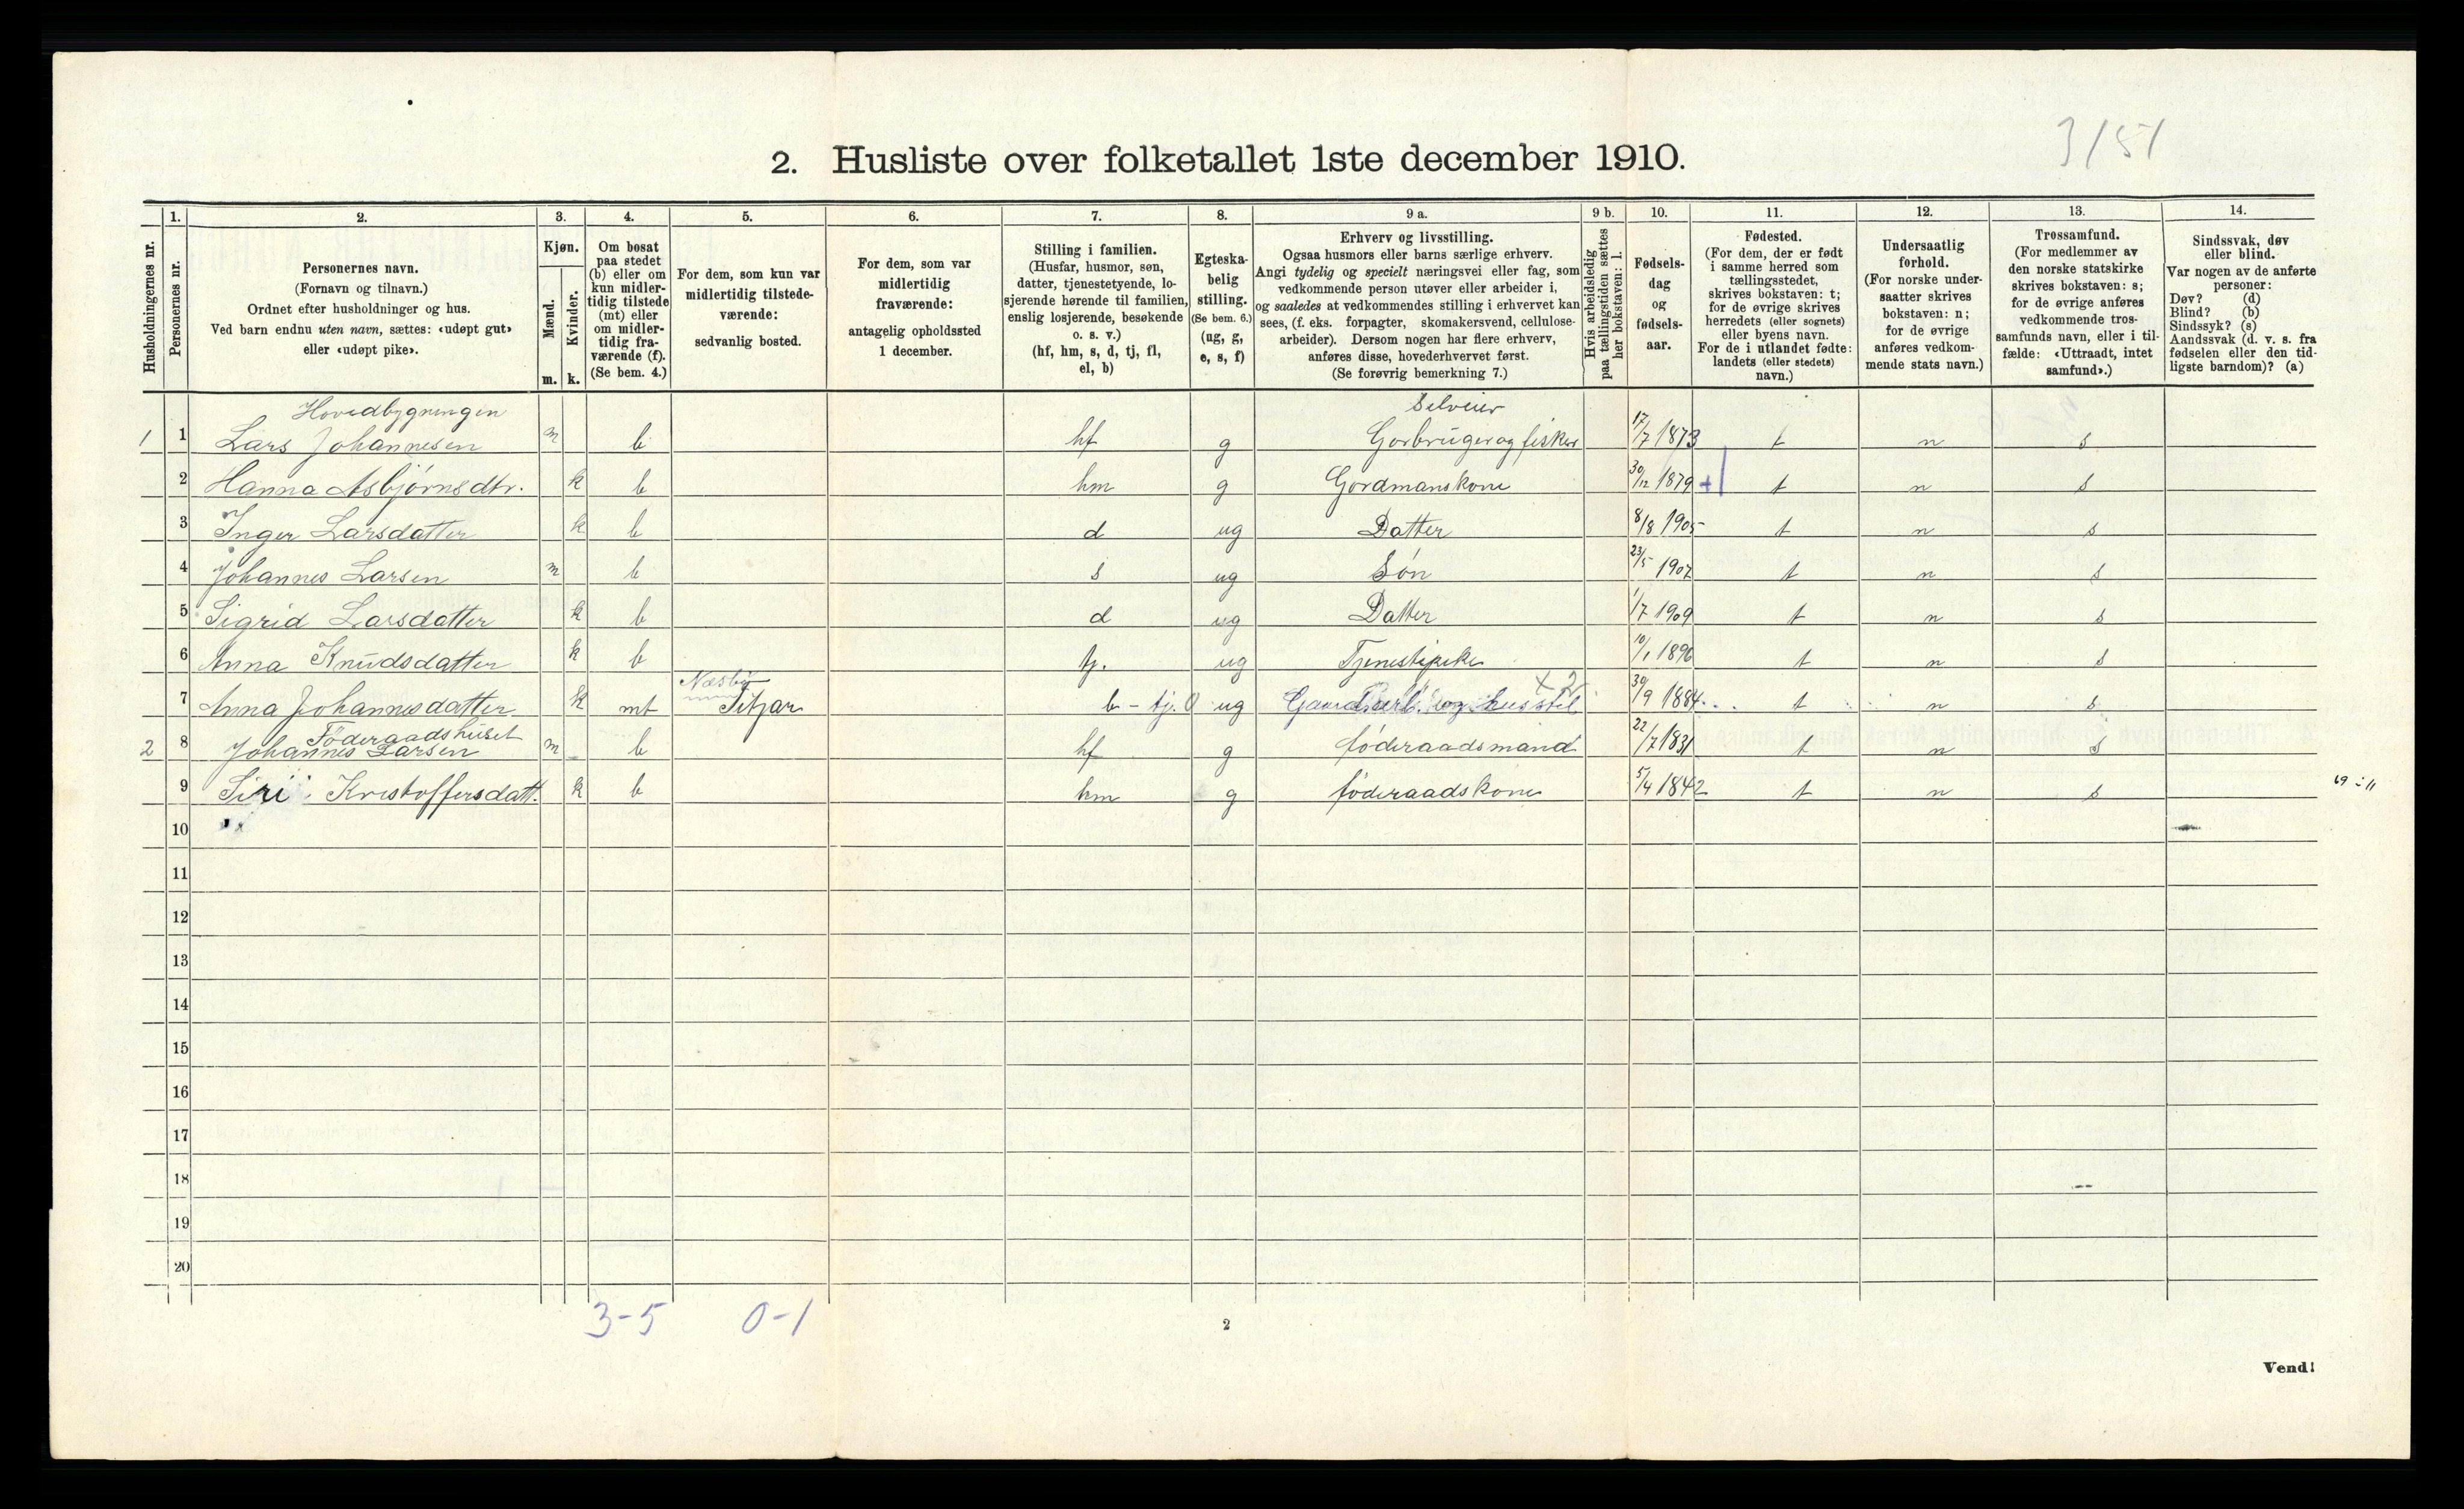 3/51
2. Husliste over folketallet 1ste december 1910.
Husholdningernes nr.
1.
Personernes nr.
2.
Personernes navn.
(Fornavn og tilnavn.)
Ordnet efter husholdninger og hus.
Ved barn endnu uten navn, sættes: «udøpt gut»
eller «udøpt pike».
3.
Kjøn.
Mænd.
Kvinder.
m. k.
4.
Om bosat
paa stedet
(b) eller om
kun midler-
tidig tilstede
(mt) eller
om midler-
tidig fra-
værende (f).
(Se bem. 4.)
5.
For dem, som kun var
midlertidig tilstede-
værende:
sedvanlig bosted.
6.
For dem, som var
midlertidig
fraværende:
antagelig opholdssted
1 december.
7.
Stilling i familien.
(Husfar, husmor, søn,
datter, tjenestetyende, lo-
sjerende hørende til familien,
enslig losjerende, besøkende
o. s. v.)
(hf, hm, s, d, tj, fl,
el, b)
8.
Egteska-
belig
stilling.
(Se bem. 6.)
(ug, g,
e, s, f)
9 a.
Erhverv og livsstilling.
Ogsaa husmors eller barns særlige erhverv.
Angi tydelig og specielt næringsvei eller fag, som
vedkommende person utøver eller arbeider i,
og saaledes at vedkommendes stilling i erhvervet kan
sees, (f. eks. forpagter, skomakersvend, cellulose-
arbeider). Dersom nogen har flere erhverv,
anføres disse, hovederhvervet først.
(Se forøvrig bemerkning 7.)
9 b.
Hvis arbeidsledig
paa tællingstiden sættes
her bokstaven: l.
10.
Fødsels-
dag
og
fødsels-
aar.
11.
Fødested.
(For dem, der er født
i samme herred som
tællingsstedet,
skrives bokstaven: t;
for de øvrige skrives
herredets (eller sognets)
eller byens navn.
For de i utlandet fødte:
landets (eller stedets)
navn.)
12.
Undersaatlig
forhold.
(For norske under-
saatter skrives
bokstaven: n;
for de øvrige
anføres vedkom-
mende stats navn.)
13.
Trossamfund.
(For medlemmer av
den norske statskirke
skrives bokstaven: s;
for de øvrige anføres
vedkommende tros-
samfunds navn, eller i til-
fælde: «Uttraadt, intet
samfund».)
14.
Sindssvak, døv
eller blind.
Var nogen av de anførte
personer:
Døv? (d)
Blind? (b)
Sindssyk? (s)
Aandssvak (d. v. s. fra
fødselen eller den tid-
ligste barndom)? (a)
Hovedbygningen Selveier
1 1 Lars Johannesen m b hf g Gorbruger og fisker 17/7 1873 t n s
2 Hanna Asbjørnsdtr. k b hm g Gordmanskone 30/12 1879 +1 t n s
3 Inger Larsdatter k b d ug Datter 8/8 1905 t n s
4 Johannes Larsen m b s ug Søn 23/5 1907 t n s
5 Sigrid Larsdatter k b d ug Datter 1/7 1909 t n s
6 Anna Knudsdatter k b tj. ug Tjenestepike 10/1 1896 t n s
7 Anna Johannesdatter k mt Næsbø Fitjar b - tj. 0 ug Gaardsarb. og husstel +2 30/9 1884 t n s
Føderaadshuset
2 8 Johannes Larsen m b hf g føderaadsmand 22/7 1831 t n s
9 Siri Kristoffersdatt. k b hm g føderaadskone 5/4 1842 t n s 69 - 11
10
11
12
13
14
15
16
17
18
19
20
3-5 0-1
2
Vend!